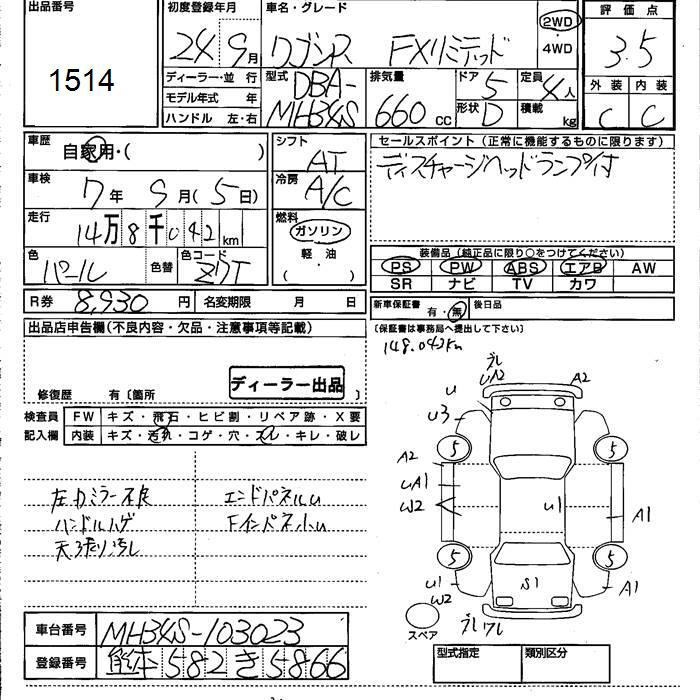 出品番号
1514
初度登録年月
24 9月
車名・グレード
ワゴンR FXリミテッド
2WD
4WD
評価点
3.5
外装 内装
C C
ディーラー・並 行
モデル年式 年
ハンドル 左・右
型式
DBA-
MH34S
排気量
660 cc
ドア 5
形状 D
定員 4人
積載 kg
車歴
自家用・( )
車検
7年 9月(5日)
走行
14万8千042km
色
パール
色替
色コード
Z7T
シフト
AT
冷房
A/C
燃料
ガソリン
軽・油
( )
セールスポイント(正常に機能するものに限ります)
ディスチャージヘッドランプ付
装備品(純正品に限り○をつけてください)
PS PW ABS エアB AW
SR ナビ TV カワ
R券 8,930円
名変期限 月 日
新車保証書 有・無
後日品
(保証書は事務局へ提出して下さい)
148.042km
出品店申告欄(不良内容・欠品・注意事項等記載)
修復歴 有〔箇所 〕
ディーラー出品
検査員
記入欄
FW キズ・飛石・ヒビ割・リペア跡・X要
内装 キズ・汚れ・コゲ・穴・スレ・キレ・破レ
左Dミラー不良
ハンドルハゲ
天張り汚れ
エンドパネルU
Fインパネ小U
ズレ
UA2 A2
U
U3
5 5
A2
UA1
W2
U1
A1
5 5
U1
W2
S1
A1
スペア
車台番号 MH34S-103023
登録番号 熊本582き5866
型式指定 類別区分